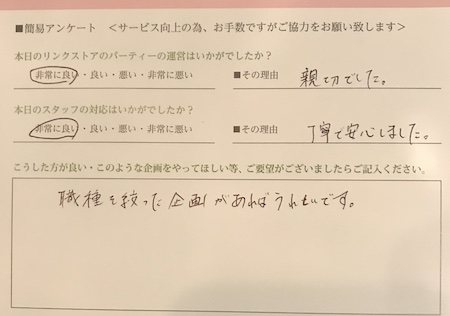 ■簡易アンケート　＜サービス向上の為、お手数ですがご協力をお願い致します＞
本日のリンクストアのパーティーの運営はいかがでしたか？
非常に良い・良い・悪い・非常に悪い　■その理由　親切でした。
本日のスタッフの対応はいかがでしたか？
非常に良い・良い・悪い・非常に悪い　■その理由　丁寧で安心しました。
こうした方が良い・このような企画をやってほしい等、ご要望がございましたらご記入ください。
職種を絞った企画があればうれしいです。